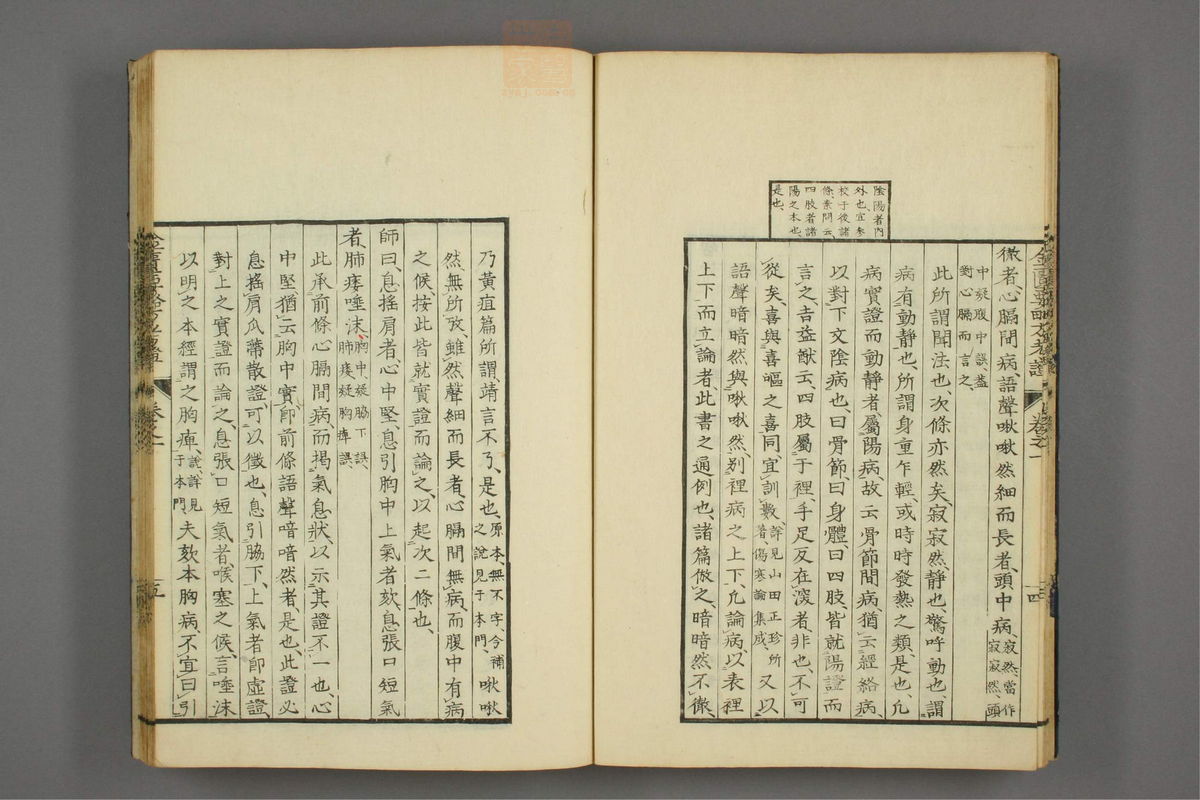 陰陽者内
外也、宜參
校于後諸
條、素問云、
四肢者諸
陽之本也、
是也、
徹者、心膈間病、語聲啾啾然細而長者、頭中病、寂然當作寂寂然、頭
中疑腹中誤、蓋對心膈而言之、
此所謂聞法也、次條亦然矣、寂寂然、靜也、驚呼動也、謂
病有動靜也、所謂身重乍輕、或時時發熱之類、是也、凡
病實證而動靜者、屬陽病、故云骨節間病、猶云經絡病、
以對下文陰病也、曰骨節、曰身體、曰四肢、皆就陽證而
言之、吉益猷云、四肢屬于裡、手足反在深者、非也、不可
從矣、喜與喜嘔之喜同、宜訓數、詳見山田正珍所著、傷寒論集成、又以
語聲暗暗然與啾啾然、別裡病之上下、凡論病、以表裡
上下而立論者、此書之通例也、諸篇倣之、暗暗然不徹、
乃黃疸篇所謂靖言不了、是也、原本、無不字今補之說見于本門、啾啾
然、無所攷、雖然聲細而長者、心膈間無病、而腹中有病
之候、按此皆就實證而論之、以起次二條也、
師曰、息搖肩者、心中堅、息引胸中上氣者欬、息張口短氣
者、肺痿唾沫、胸中疑脇下誤、肺痿疑胸痺誤、
此承前條心膈間病、而揭氣息狀、以示其證不一也、心
中堅、猶云胸中實、卽前條語聲喑喑然者、是也、此證必
息搖肩、瓜蒂散證可以徵也、息引脇下、上氣者卽虛證、
對上之實證而論之、息張口短氣者、喉塞之候、言唾沫
以明之、本經謂之胸痺、說詳見于本門、夫欬本胸病、不宜曰引